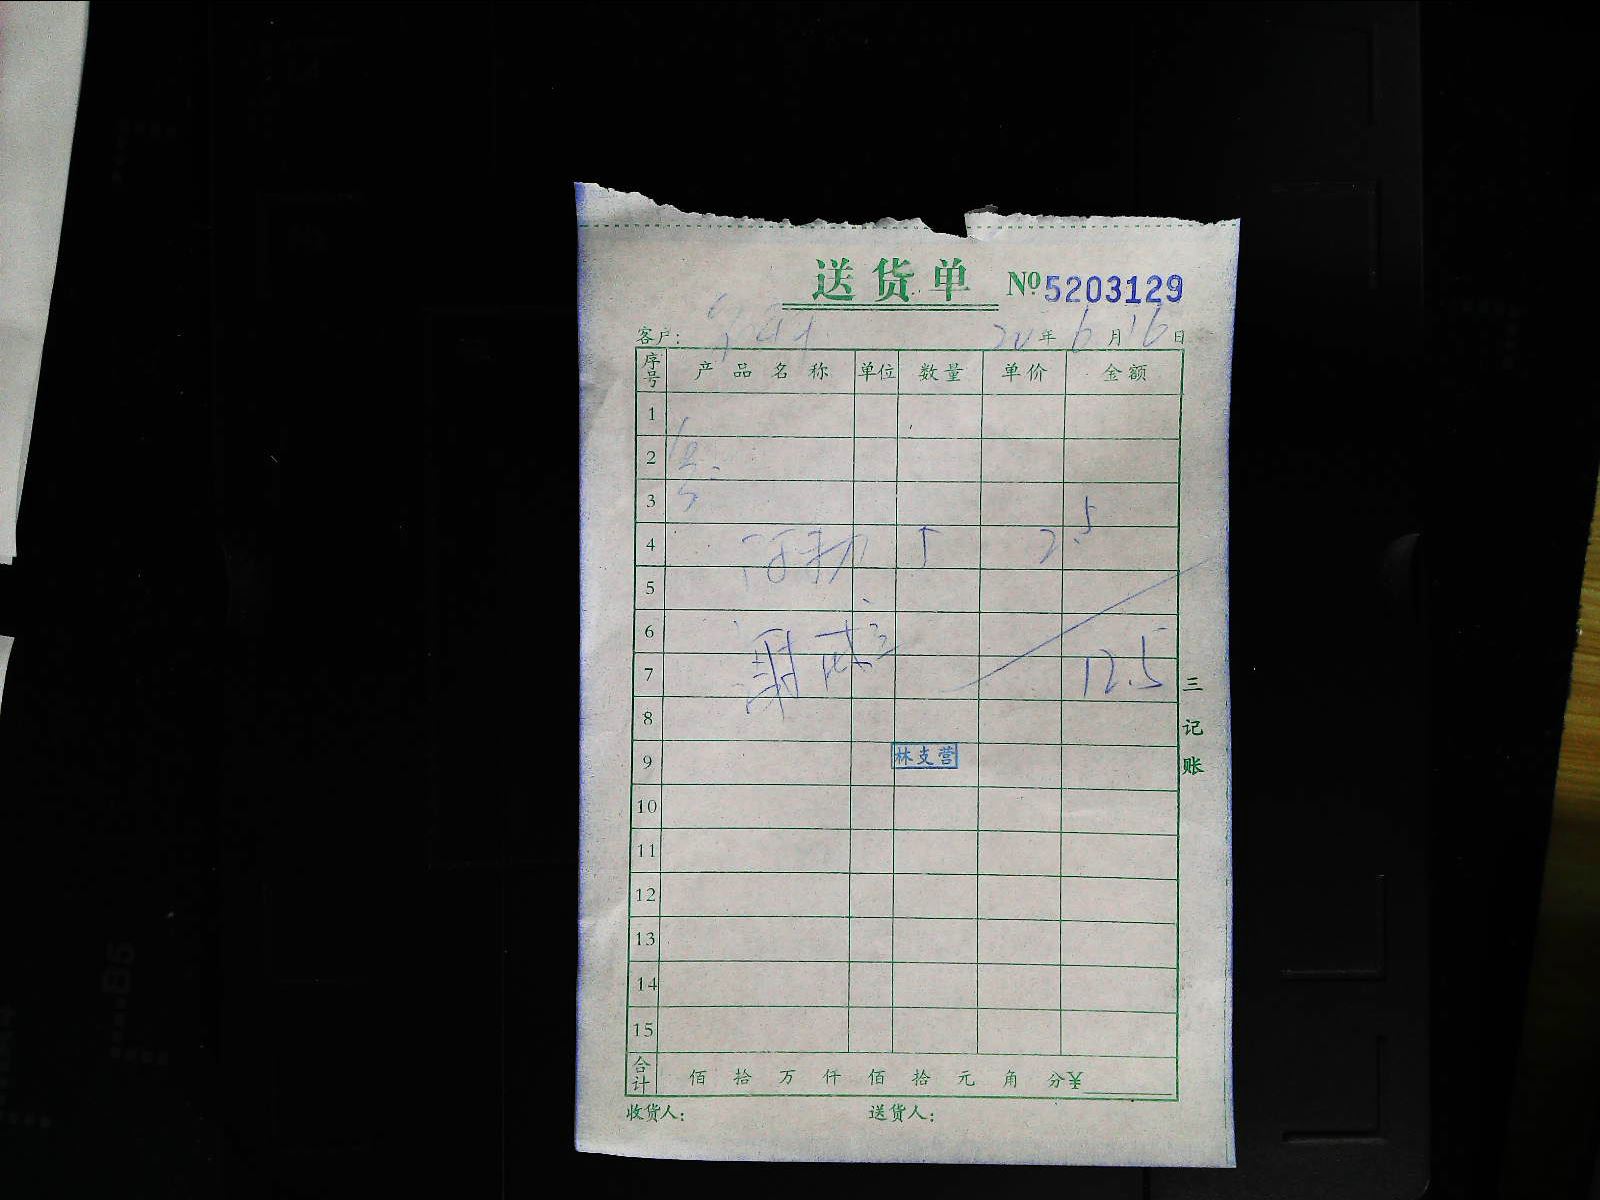 送货单 №5203129
客户: 20年6月16日
序号 产品名称 单位 数量 单价 金额
1
2
3
4 2.5
5
6
7 12.5
8
9 林支营
10
11
12
13
14
15
合计 佰 拾 万 仟 佰 拾 元 角 分¥
收货人: 送货人:
三记账